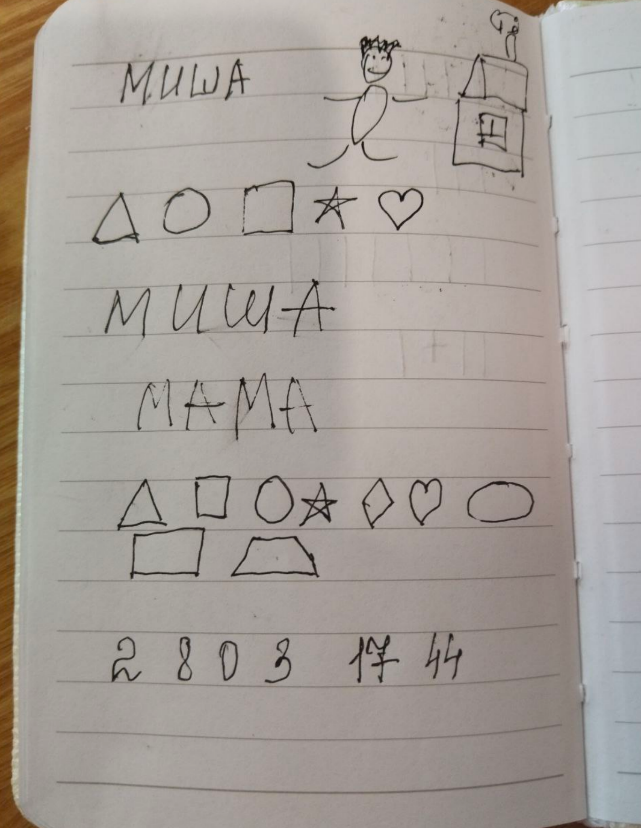 МИША
МИША
МАМА
2 8 0 3 17 44